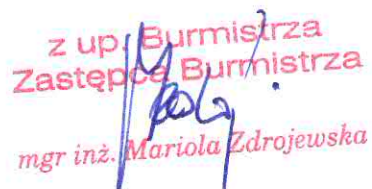 z up. Burmistrza
Zastępca Burmistrza
mgr inż. Mariola Zdrojewska